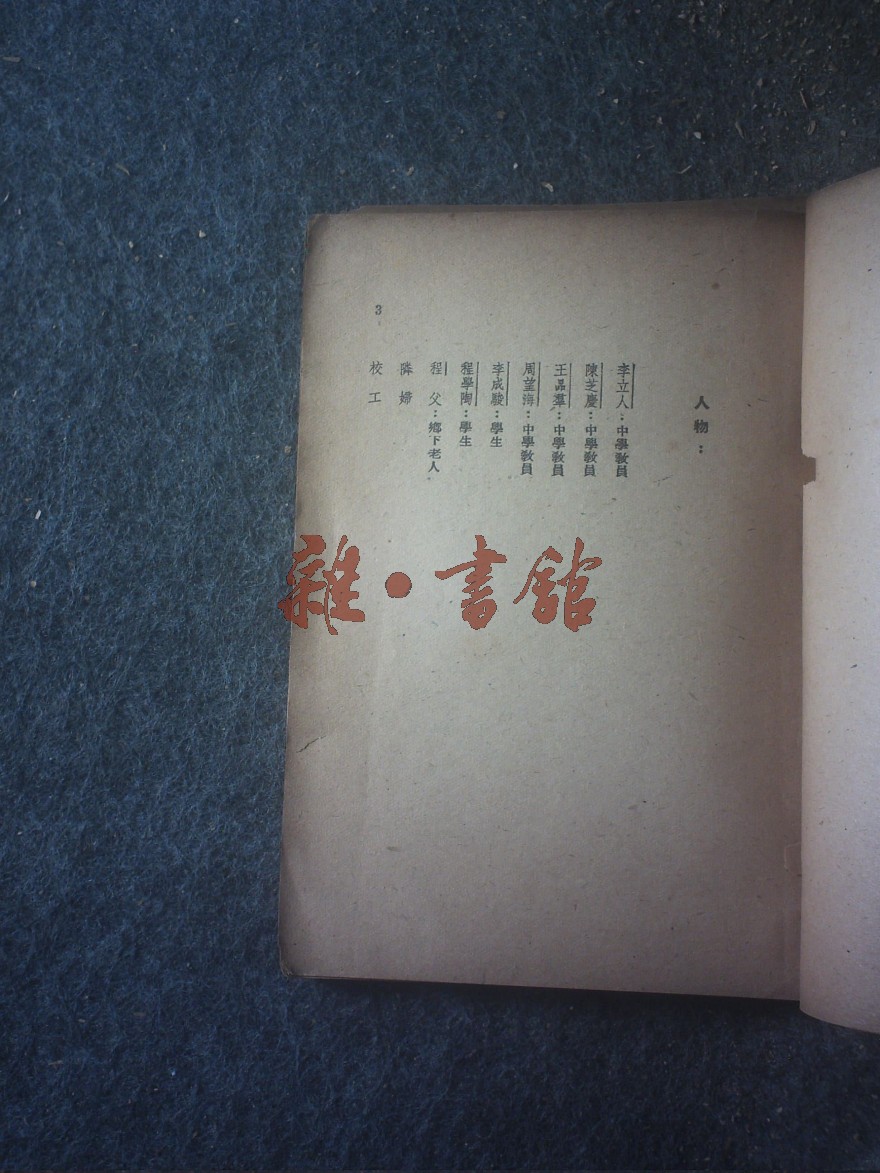 人物：
李立人：中學教員
陳芝慶：中學教員
王晶羣：中學教員
周望海：中學教員
李成駿：學生
程學陶：學生
程　父：鄉下老人
隣　婦
校　工
3
雜·書館